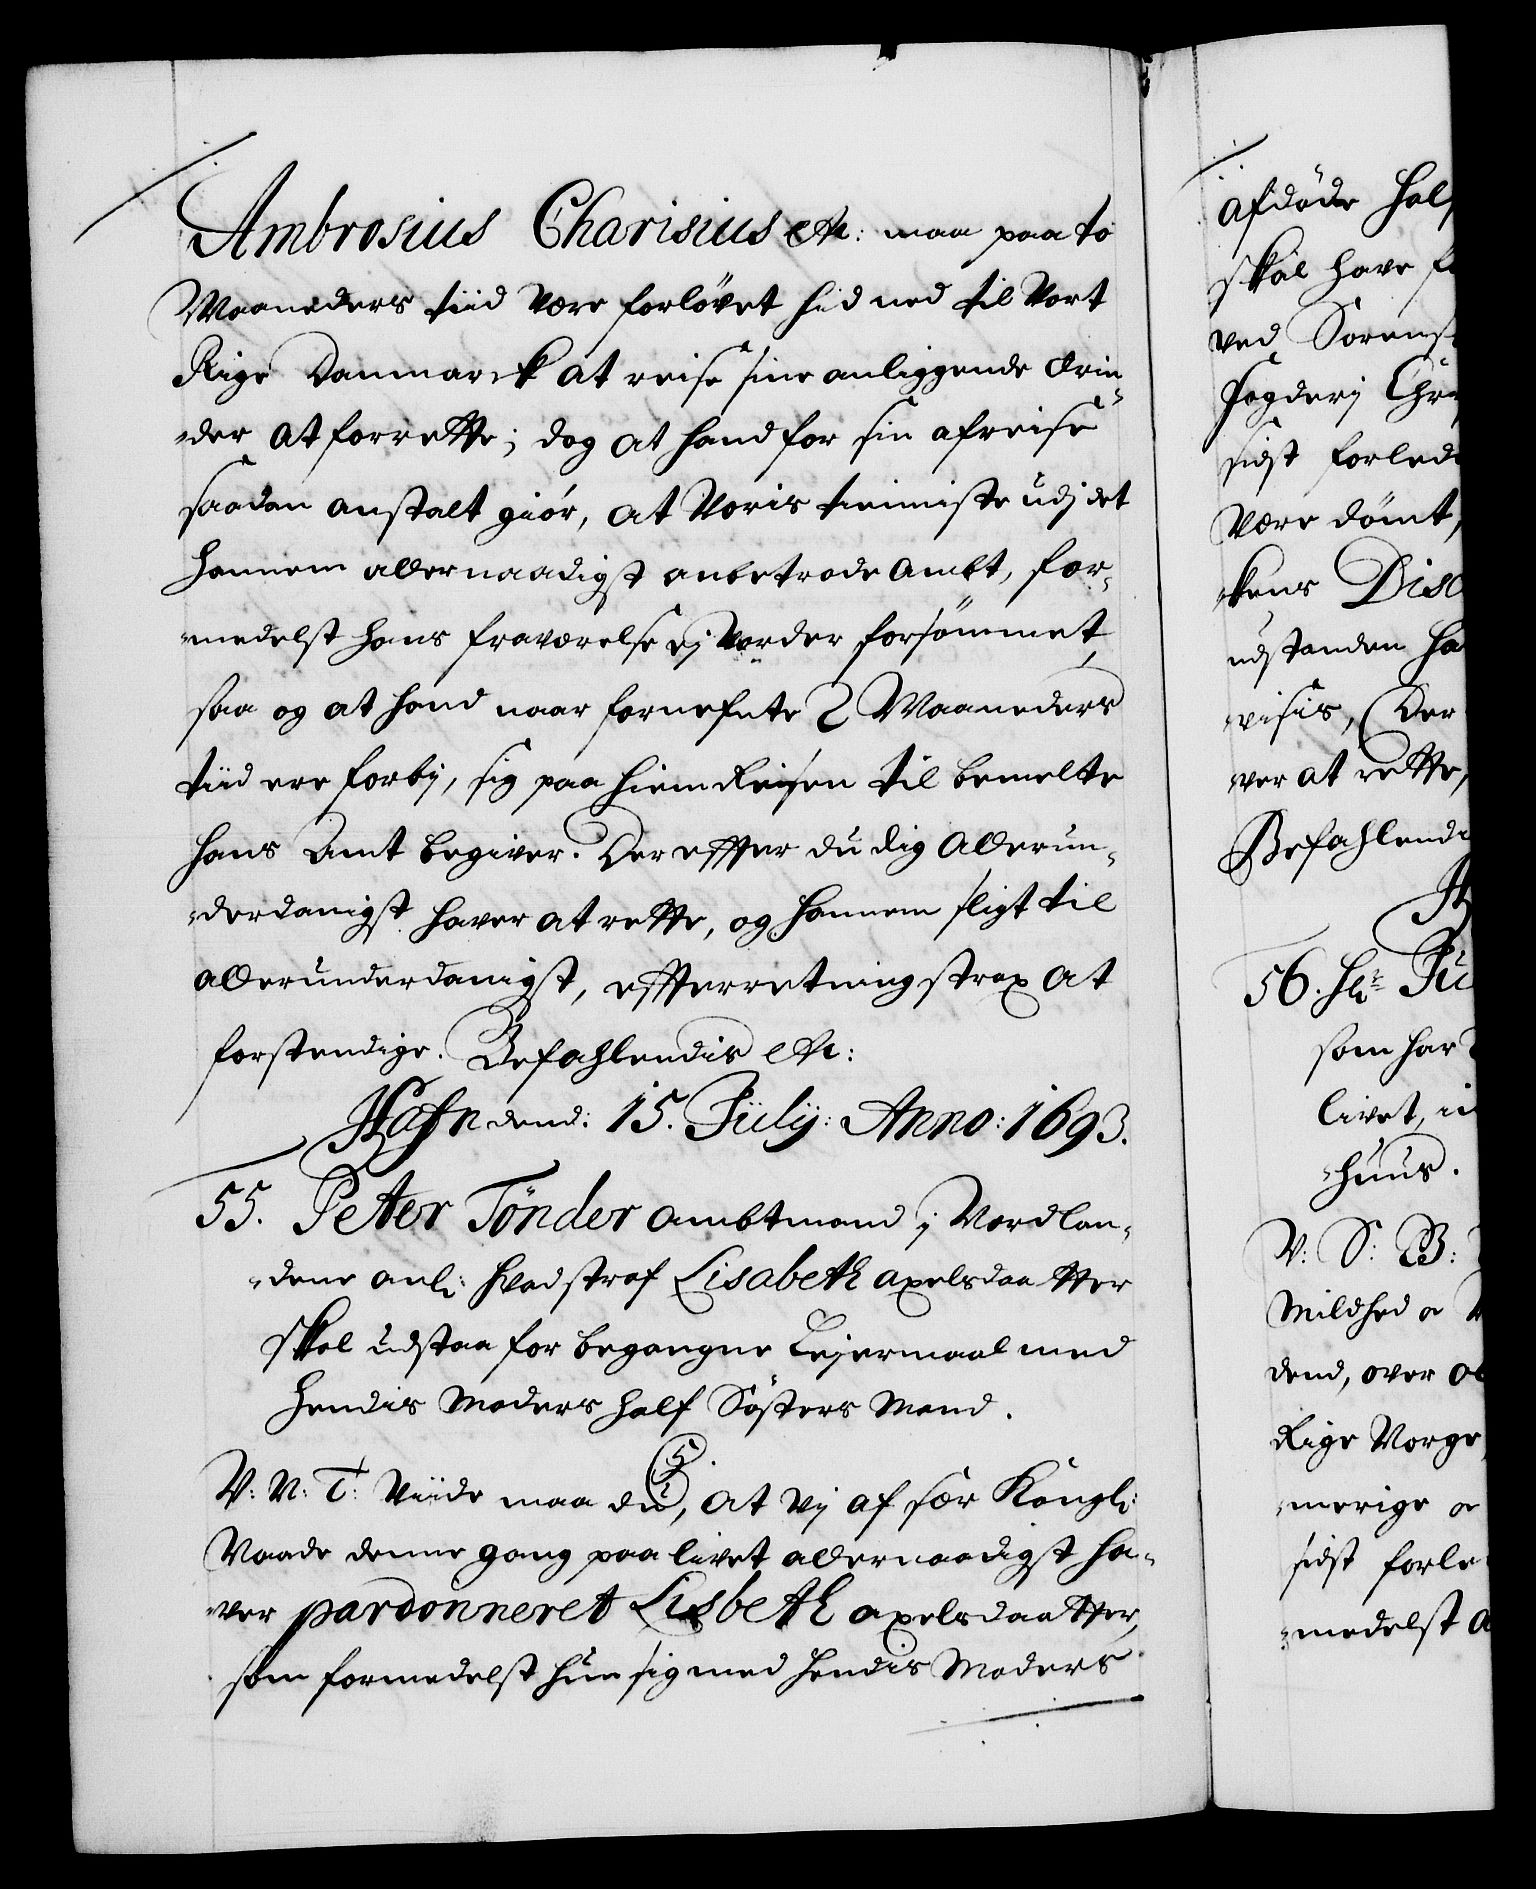 Ambrosius Charisius etc: maa paa to
Maaneders tiid være forlövet hid ned til Vort
Rige Danmarck at reise sine anliggende Erin-
-der at forrette; dog at hand for sin afreise
saadan anstalt giör, at Voris tienniste udj det
hannem allernaadigst anbetrode Ambt, for-
-medelst hans fraværelse ej vorder forsömmet,
saa og at hand naar fornefnte 2 Maaneders
tiid ere forbj, sig paa hiem Reisen til bemelte
hans Amt begiver. Der effter du dig Allerun-
-derdanigst haver at rette, og hannem sligt til
allerunderdanigst, effterretning strax at
forstendige. Befahlendis etc:
Hafn dend: 15. Julij: Anno: 1693.
55. Peter Tönder Ambtmand j Nordlan-
-dene anl: hvad straf Lisabeth axelsdaatter
skal udstaa for begangne Lejermaal med
hendis Moders half Sösters Mand.
V: N: T: Viide maa du, at Vj af sær Kongl:
Naade denne gang paa livet allernaadigst ha-
-ver pardonneret Lisbeth axelsdaatter,
som formedelst hun sig med hendis Moders
afdöde hals
skal have
ved Sorensk
fogderj Chr
sidst forled
være dömt,
-kens Disc
udstanden ha
-visis, Der
-ver at rette,
Befahlend
56. Hr: Ju
som har
livet, i
-huus.
V: S: B:
Mildhed
dend, over al
Rige Norge
-merige
sidst forle
-medelst